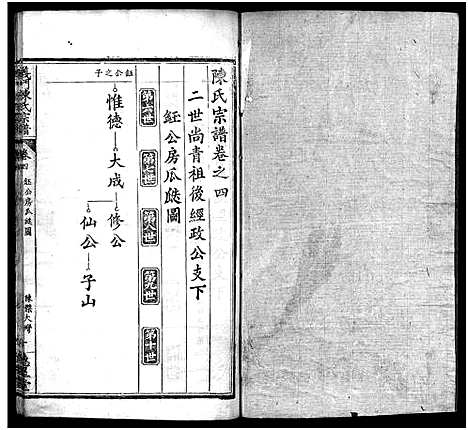 陳氏宗譜卷之四
二世尚青祖後經政公支下
鈺公房瓜瓞圖
第六世
第七世
第八世
第九世
第十世
鈺公之子
惟德
大成
修公
仙公
子山
義門陳氏宗譜
卷四
鈺公房瓜瓞圖